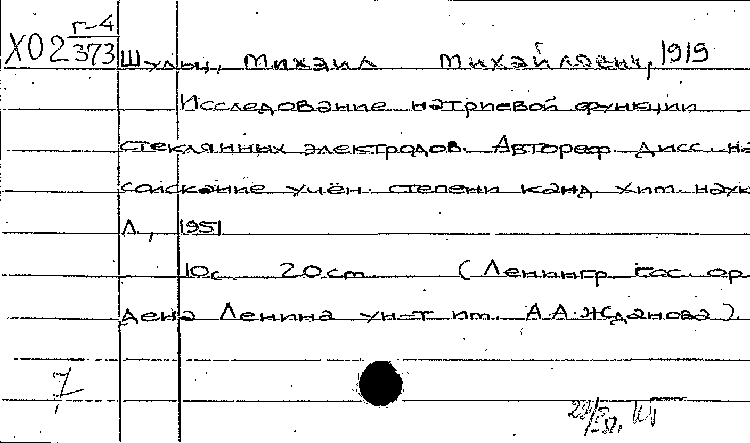 Х02 Г-4/373
Шульц, Михаил Михайлович, 1919
Исследование натриевой функции
стеклянных электродов. Автореф. дисс. на
соискание учён. степени канд. хим. наук
Л., 1951
10с. 20см. (Ленингр. гос. ор
дена Ленина ун-т им. А.А.Жданова).
7